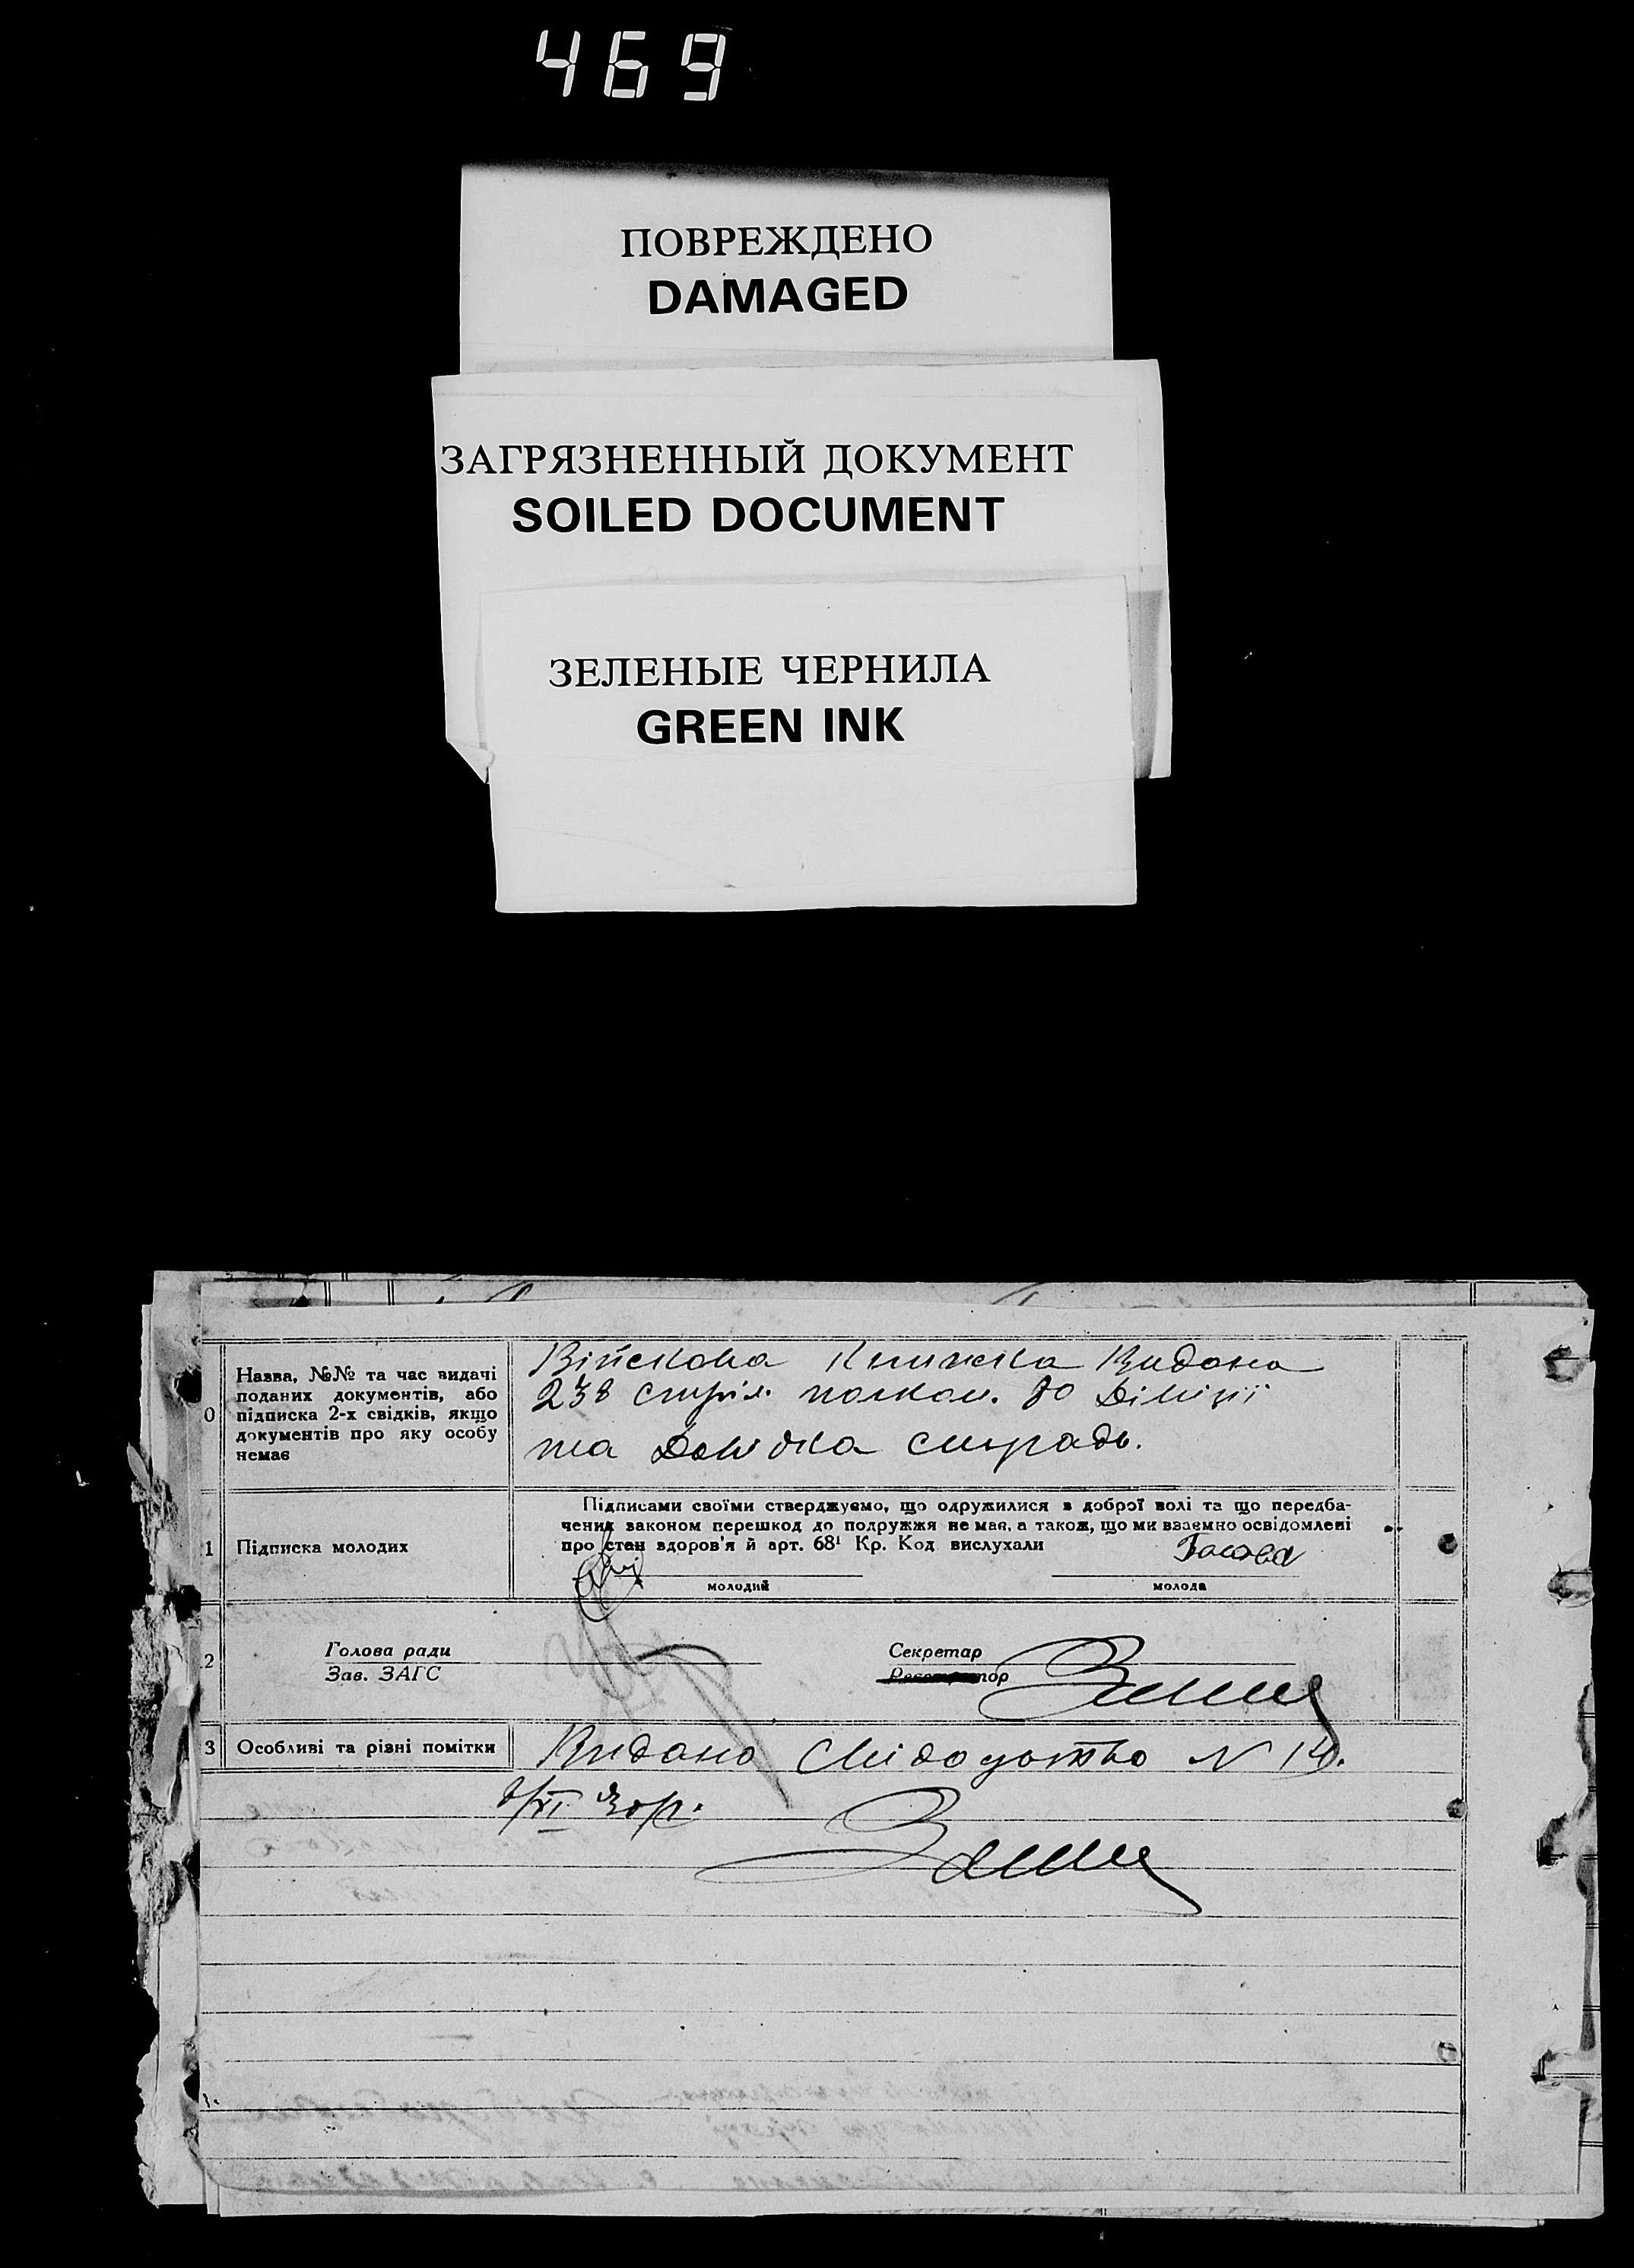 469
ПОВРЕЖДЕНО
DAMAGED
ЗАГРЯЗНЕННЫЙ ДОКУМЕНТ
SOILED DOCUMENT
ЗЕЛЕНЫЕ ЧЕРНИЛА
GREEN INK
0
Назва, №№ та час видачі
поданих документів, або
підписка 2-х свідків, якщо
документів про яку особу
немає
Війскова Книжка Видана
238 стріл. полком. 80 Дівізії
та Довідка сільради.
1
Підписка молодих
Підписами своїми стверджуємо, що одружилися з доброї волі та що передба-
чених законом перешкод до подружжя немає, а також, що ми взаємно освідомлені
про стан здоров'я й арт. 68¹ Кр. Код вислухали
молодий
молода
2
Голова ради
Зав. ЗАГС
Секретар
3
Особливі та різні помітки
Видано Свідоцтво N
/XI 30 р.